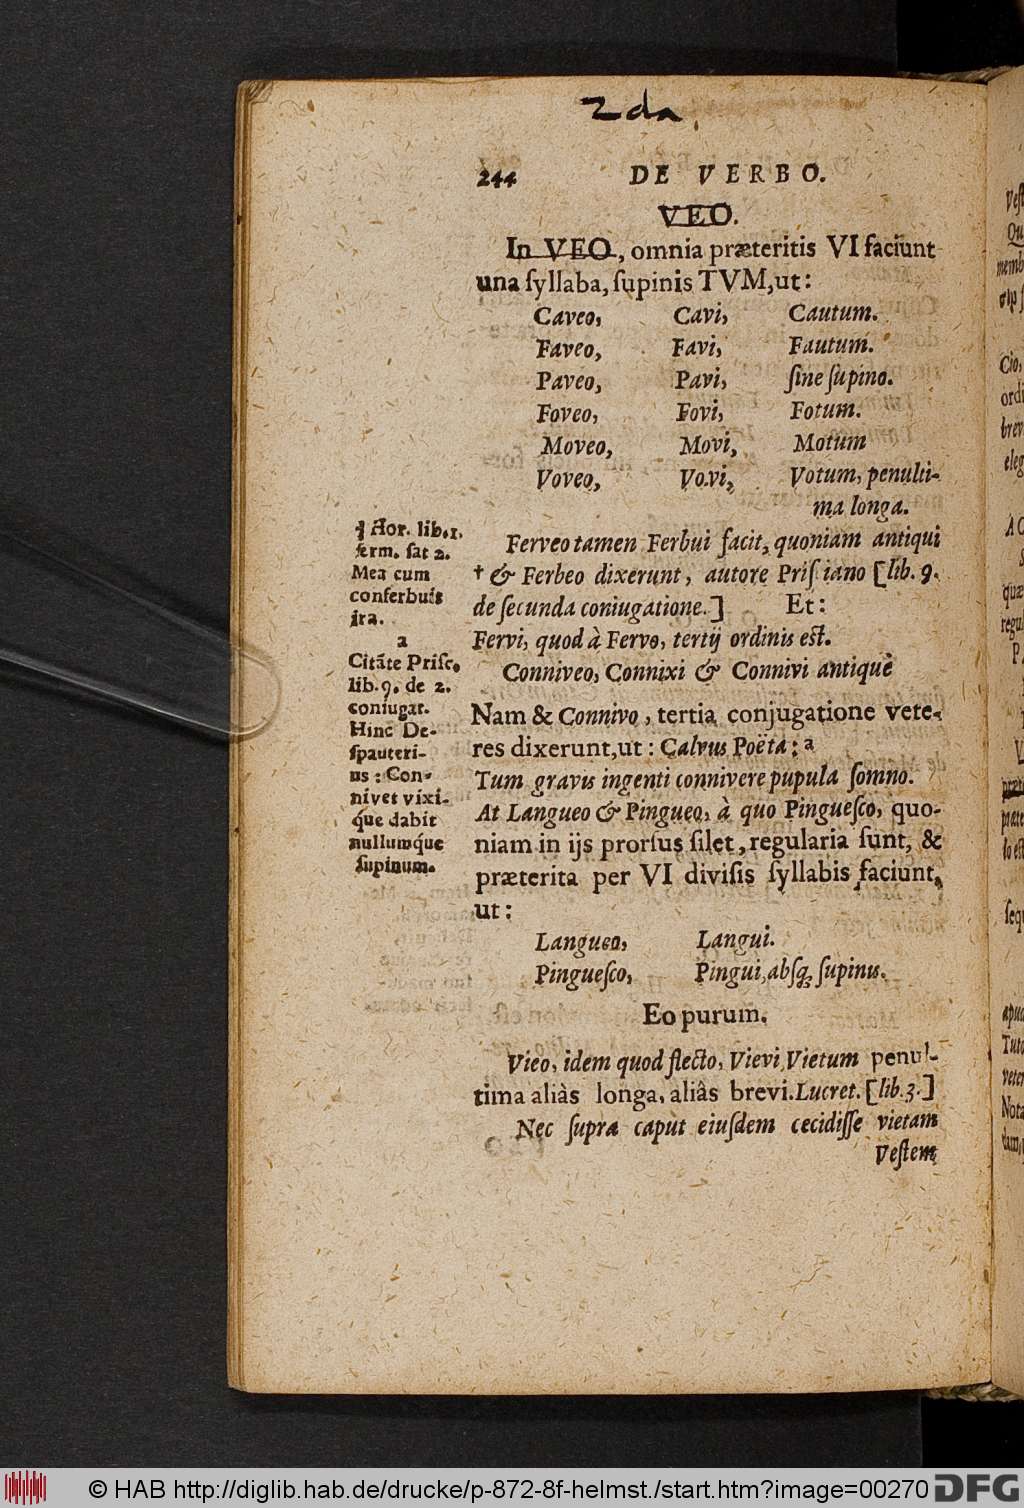 2da
244 DE VERBO.
VEO.
In VEO, omnia præteritis VI faciunt
una ſyllaba, ſupinis TVM, ut:
Caveo, Cavi, Cautum.
Faveo, Favi, Fautum.
Paveo, Pavi, ſine ſupino.
Foveo, Fovi, Fotum.
Moveo, Movi, Motum
Voveo, Vovi, Votum, penulti-
ma longa.
Ferveo tamen Ferbui facit, quoniam antiqui
† & Ferbeo dixerunt, autore Priſciano [lib. 9.
de ſecunda coniugatione.] Et:
Fervi, quod à Fervo, tertij ordinis eſt.
Conniveo, Connixi & Connivi antiquè
Nam & Connivo, tertia conjugatione vete-
res dixerunt, ut: Calvus Poëta: a
Tum gravis ingenti connivere pupula ſomno.
At Langueo & Pingueo, à quo Pingueſco, quo-
niam in ijs prorſus ſilet, regularia ſunt, &
præterita per VI diviſis ſyllabis faciunt,
ut:
Langueo, Langui.
Pingueſco, Pingui, abſq; ſupinis.
Eo purum.
Vieo, idem quod flecto, Vievi Vietum penul-
tima aliàs longa, aliâs brevi. Lucret. [lib. 3.]
Nec ſupra caput eiuſdem cecidiſſe vietam
Veſtem
Hor. lib. 1.
ſerm. ſat 2.
Mea cum
conferbuit
ira.
a
Citãte Priſc.
lib. 9. de 2.
coniugat.
Hinc De-
ſpauteri-
us: Con-
nivet vixi-
que dabit
nullumque
ſupinum.
© HAB http://diglib.hab.de/drucke/p-872-8f-helmst./start.htm?image=00270 DFG